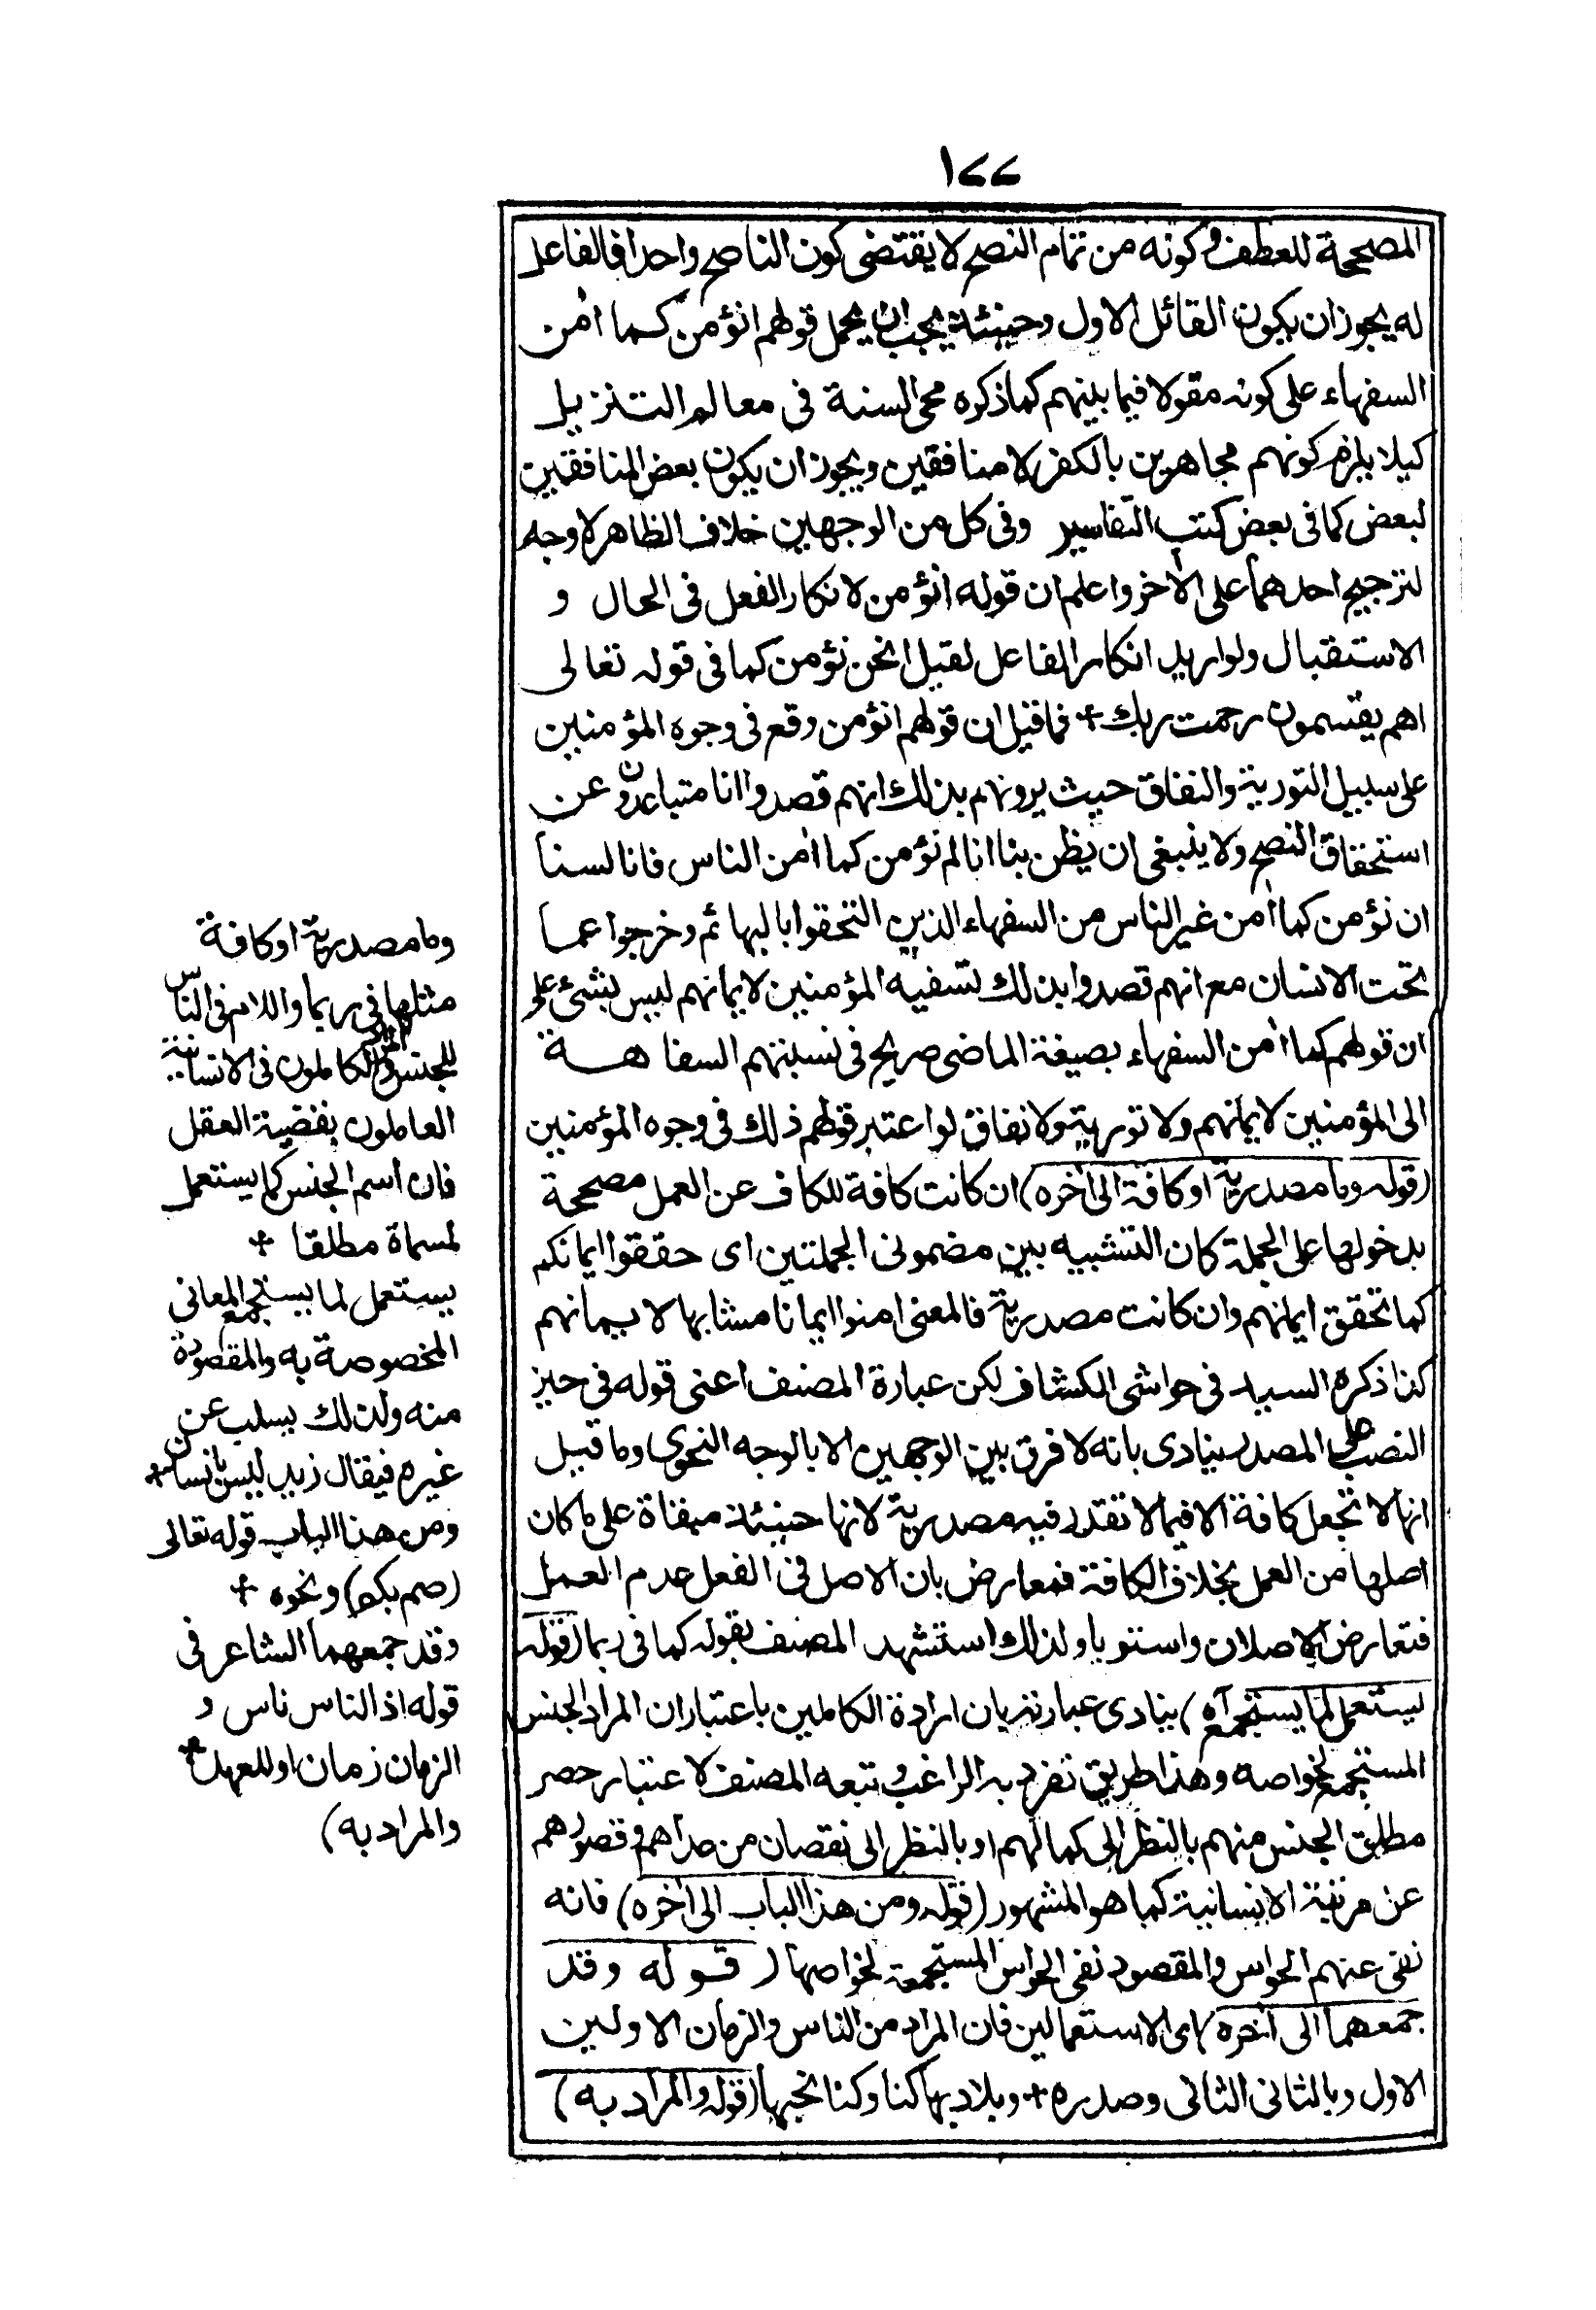 ١٧٧
المصححة للعطف وكونه من تمام النصح لا يقتضى كون الناصح واحدا فالفاعل
له يجوز ان يكون القائل الاول وحينئذ يجب ان يحمل قولهم انؤمن كما اٰمن
السفهاء على كونه مقولا فيما بينهم كما ذكره محى السنة فى معالم التنزيل
كيلا يلزم كونهم مجاهرين بالكفر لا منافقين ويجوز ان يكون بعض المنافقين
لبعض كما فى بعض كتب التفاسير وفى كل من الوجهين خلاف الظاهر لا وجه
لترجيح احدهما على الاٰخر واعلم ان قوله انؤمن لانكار الفعل فى الحال و
الاستقبال ولو اريد انكار الفاعل لقيل انحن نؤمن كما فى قوله تعالى
اهم يقسمون رحمت ربك + فما قيل ان قولهم انؤمن وقع فى وجوه المؤمنين
على سبيل التورية والنفاق حيث يرونهم بذلك انهم قصدوا انا متباعدون عن
استحقاق النصح ولا ينبغى ان يظن بنا انا لم نؤمن كما اٰمن الناس فانا لسنا
ان نؤمن كما اٰمن غير الناس من السفهاء الذين التحقوا بالبهائم وخرجوا عما
تحت الانسان مع انهم قصدوا بذلك تسفيه المؤمنين لايمانهم ليس بشئ على
ان قولهم كما اٰمن السفهاء بصيغة الماضى صريح فى نسبتهم السفاهــة
الى المؤمنين لايمانهم ولا تورية ولا نفاق لو اعتبر قولهم ذلك فى وجوه المؤمنين
(قوله وما مصدرية او كافة الى اٰخره) ان كانت كافة للكاف عن العمل مصححة
بدخولها على الجملة كان التشبيه بين مضمونى الجملتين اى حققوا ايمانكم
كما تحقق ايمانهم وان كانت مصدرية فالمعنى امنوا ايمانا مشابها لايمانهم
كذا ذكره السيد فى حواشى الكشاف لكن عبارة المصنف اعنى قوله فى حيز
النصب على المصدر ينادى بانه لا فرق بين الوجهين الا بالوجه النحوى وما قيل
انها لا تجعل كافة الا فيما لا تقدر فيه مصدرية لانها حينئذ مبقاة على ما كان
اصلها من العمل بخلاف الكافة فمعارض بان الاصل فى الفعل عدم العمل
فتعارض الاصلان واستويا ولذلك استشهد المصنف بقوله كما فى ربما (قوله
يستعمل لما يستجمع آه) ينادى عبارته بان ارادة الكاملين باعتبار ان المراد الجنس
المستجمع لخواصه وهذا طريق تفرد به الراغب وتبعه المصنف لا عتبار حصر
مطلق الجنس منهم بالنظر الى كمالهم او بالنظر الى نقصان من عداهم وقصورهم
عن مرتبة الانسانية كما هو المشهور (قوله ومن هذا الباب الى اٰخره) فانه
نفى عنهم الحواس والمقصود نفى الحواس المستجمعة لخواصها (قــوله وقد
جمعهما الى اٰخره) اى الاستعمالين فان المراد من الناس والزمان الاولين
الاول وبالثانى الثانى وصدره + وبلاد بها كنا وكنا نحبها (قوله والمراد به)
وما مصدرية او كافة
مثلها فى ربما واللام فى الناس
للجنس والمراد الكاملون فى الانسانية
العاملون بقضية العقل
فان اسم الجنس كما يستعمل
لمسماة مطلقا +
يستعمل لما يستجمع المعانى
المخصوصة به والمقصودة
منه ولذلك يسلب عن
غيره فيقال زيد ليس بانسان +
ومن هذا الباب قوله تعالى
(صم بكم) ونحوه +
وقد جمعهما الشاعر فى
قوله اذ الناس ناس و
الزمان زمان او للعهد +
والمراد به)